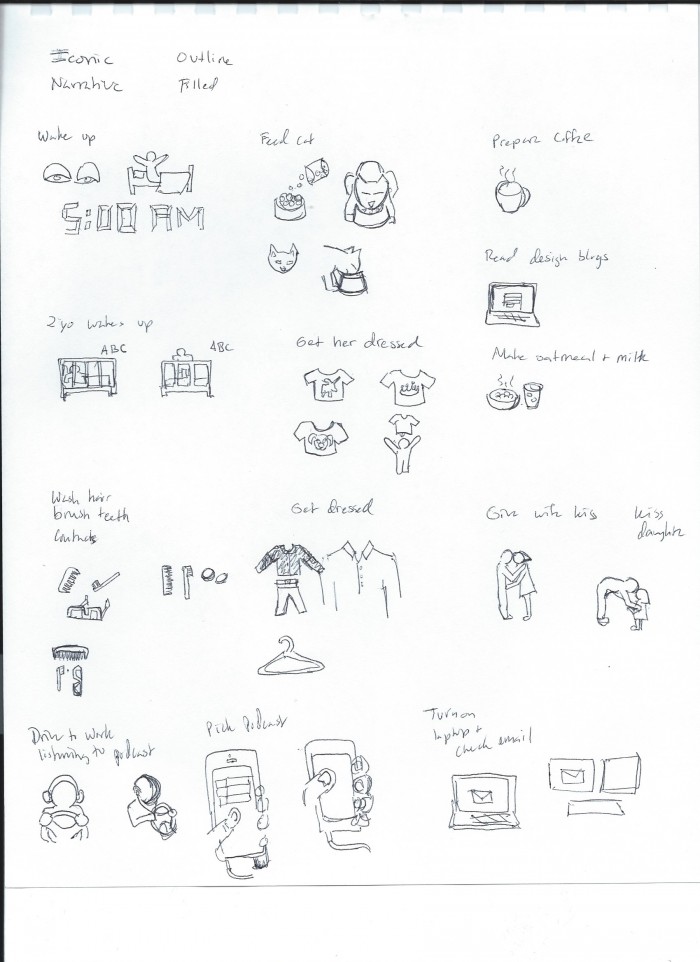 Iconic Outline
Narrative Filled
Wake up
Feed cat
Prepare Coffee
5:00 AM
Read design blogs
2 yo wakes up
ABC
ABC
Get her dressed
Make oatmeal + milk
Wash hair
brush teeth
Contacts
Get dressed
Give wife kiss
kiss
daughter
Drive to work
listening to podcast
Pick Podcast
Turn on
laptop +
check email